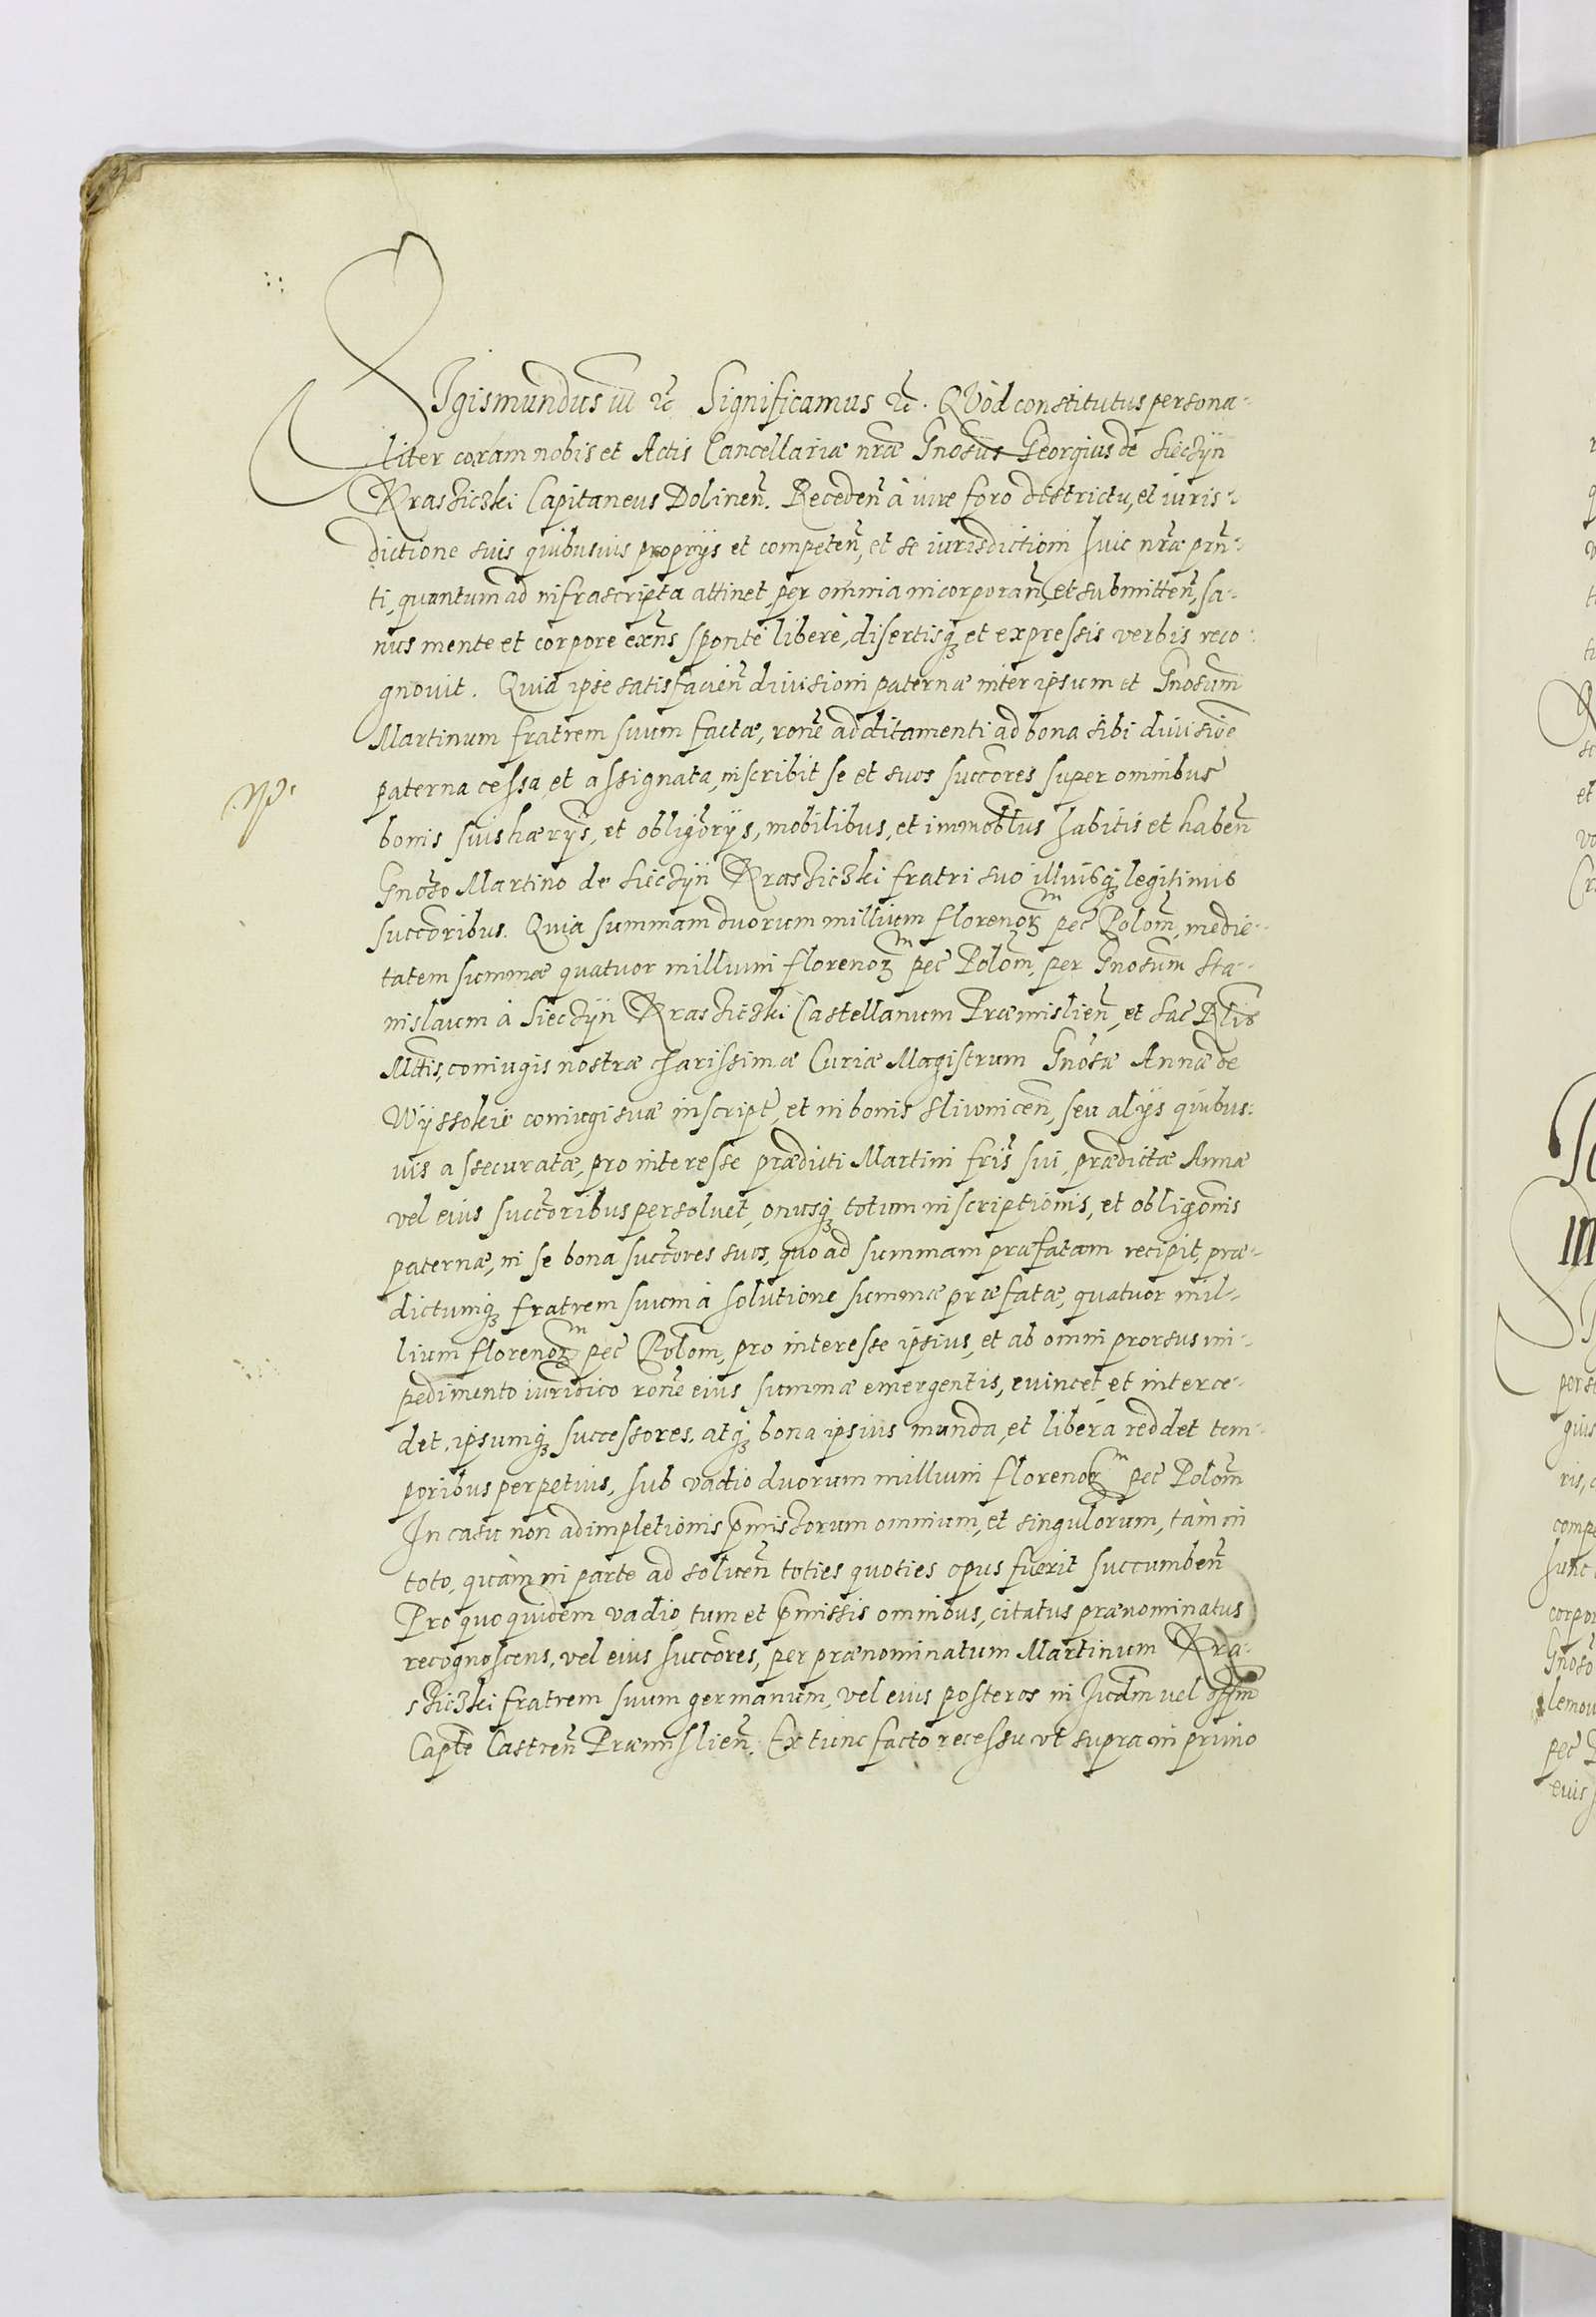 SIgismundus iii etc Significamus etc. Quod constitutus persona-
liter coram nobis et Actis Cancellariæ nræ Gnosus Georgius de Sieczÿn
Krasziczki Capitaneus Dolinen̄. Receden̄ à iure foro districtu, et iuris-
dictione suis quibusuis proprijs et competen̄, et se iurisdictioni huic nræ prn̄-
ti, quantum ad infrascripta attinet, per omnia incorporan̄, et submitten̄, sa-
nus mente et corpore exn̄s sponte liberè, disertisq; et expressis verbis reco-
gnouit. Quia ipse satisfacien̄ diuisioni paternæ inter ipsum et Gnosum
Martinum fratrem suum factæ, rone additamenti ad bona sibi diuisioē
paterna cessa, et assignata, inscribit se et suos succōres super omnibus
bonis suis hærijs, et obligōrijs, mobilibus, et immobłbus habitis et haben̄
Gnoso Martino de Sieczÿn Krasziczki fratri suo illiusq; legitimis
succōribus. Quia summam duorum millium florenoꝝ m pec̄ Polom̄, medie-
tatem summæ quatuor millium florenoꝝ m pec̄ Polom̄, per Gnosum Sta-
nislaum à Sieczÿn Krasziczki Castellanum Præmislien̄, et Sac̄ Rlis
Mttis, coniugis nostræ charissimæ Curiæ Magistrum Gnosæ Annæ de
Wÿssokie coniugi suæ inscript̄, et in bonis Sliwnicen̄, seu alijs quibus-
uis assecuratæ, pro interesse prædicti Martini fris̄ sui, prædictæ Annæ
vel eius succōribus persoluet, onusq; totum inscriptionis, et obligōnis
paternæ, in se bona succōres suos, quo ad summam præfatam recipit, præ-
dictumq; fratrem suum à solutione summæ præfatæ, quatuor mil-
lium florenoꝝ m pec̄ Polom̄, pro interesse ipsius, et ab omni prorsus im-
pedimento iuridico rone eius summæ emergentis, euincet et interce-
det, ipsumq; successores, atq; bona ipsius munda, et libera reddet tem-
poribus perpetuis, sub vadio duorum millium florenoꝝ m pec̄ Polom̄
In casu non adimpletionis p̄missorum omnium, et singulorum, tàm in
toto, quàm in parte ad soluen̄ toties quoties opus fuerit succumben̄
Pro quo quidem vadio, tum et p̄missis omnibus, citatus prænominatus
recognoscens, vel eius succōres, per prænominatum Martinum Kra-
sziczki fratrem suum germanum, vel eius posteros in Iudm̄ vel offm̄
Capte Castren̄ Præmislien̄. Ex tunc facto recessu vt supra in primo